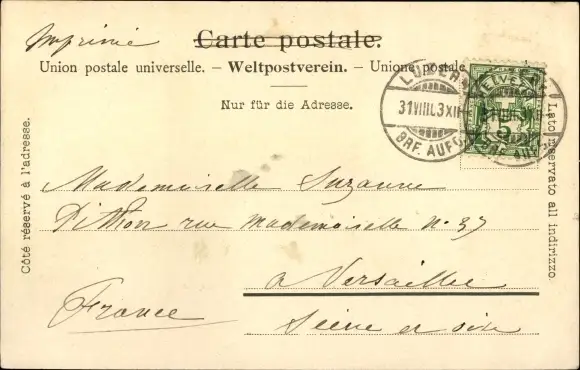 Imprimé
Carte postale.
Union postale universelle. – Weltpostverein. – Unione postale
Nur für die Adresse.
HELVETIA
5
LUZERN
31.VIII.  3 XII
BRF. AUFG.
Côté réservé à l'adresse.
Lato riservato all indirizzo.
Mademoiselle Suzanne
Pithon rue mademoiselle No 37
a Versailles
France
Seine et oise